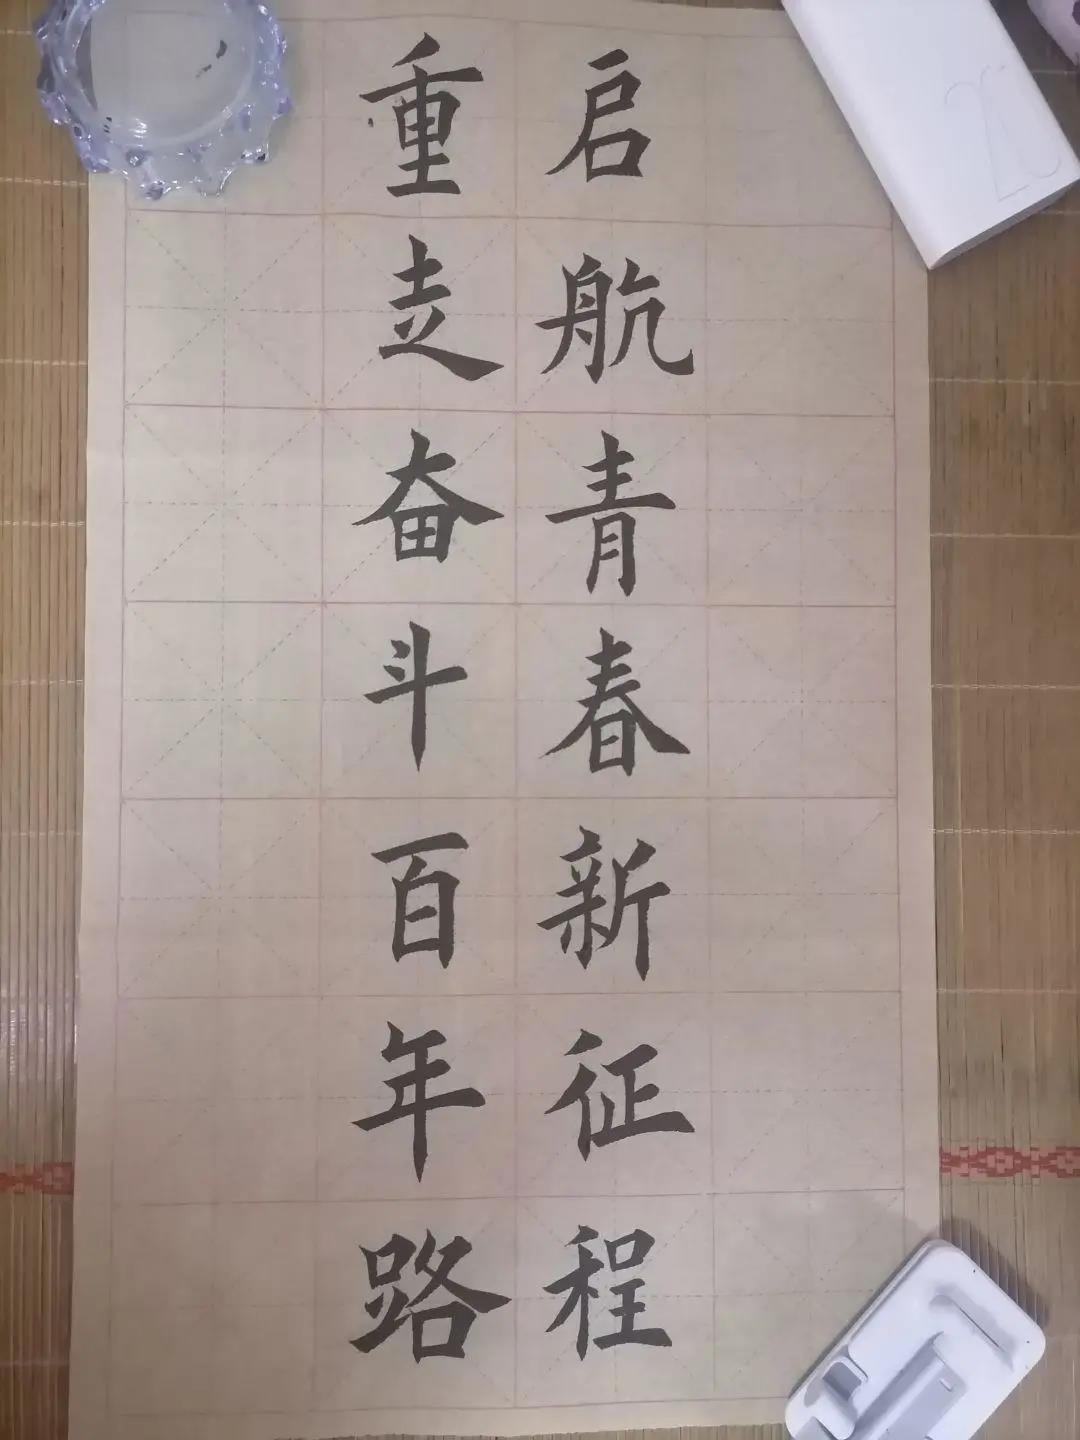 启航青春新征程
重走奋斗百年路